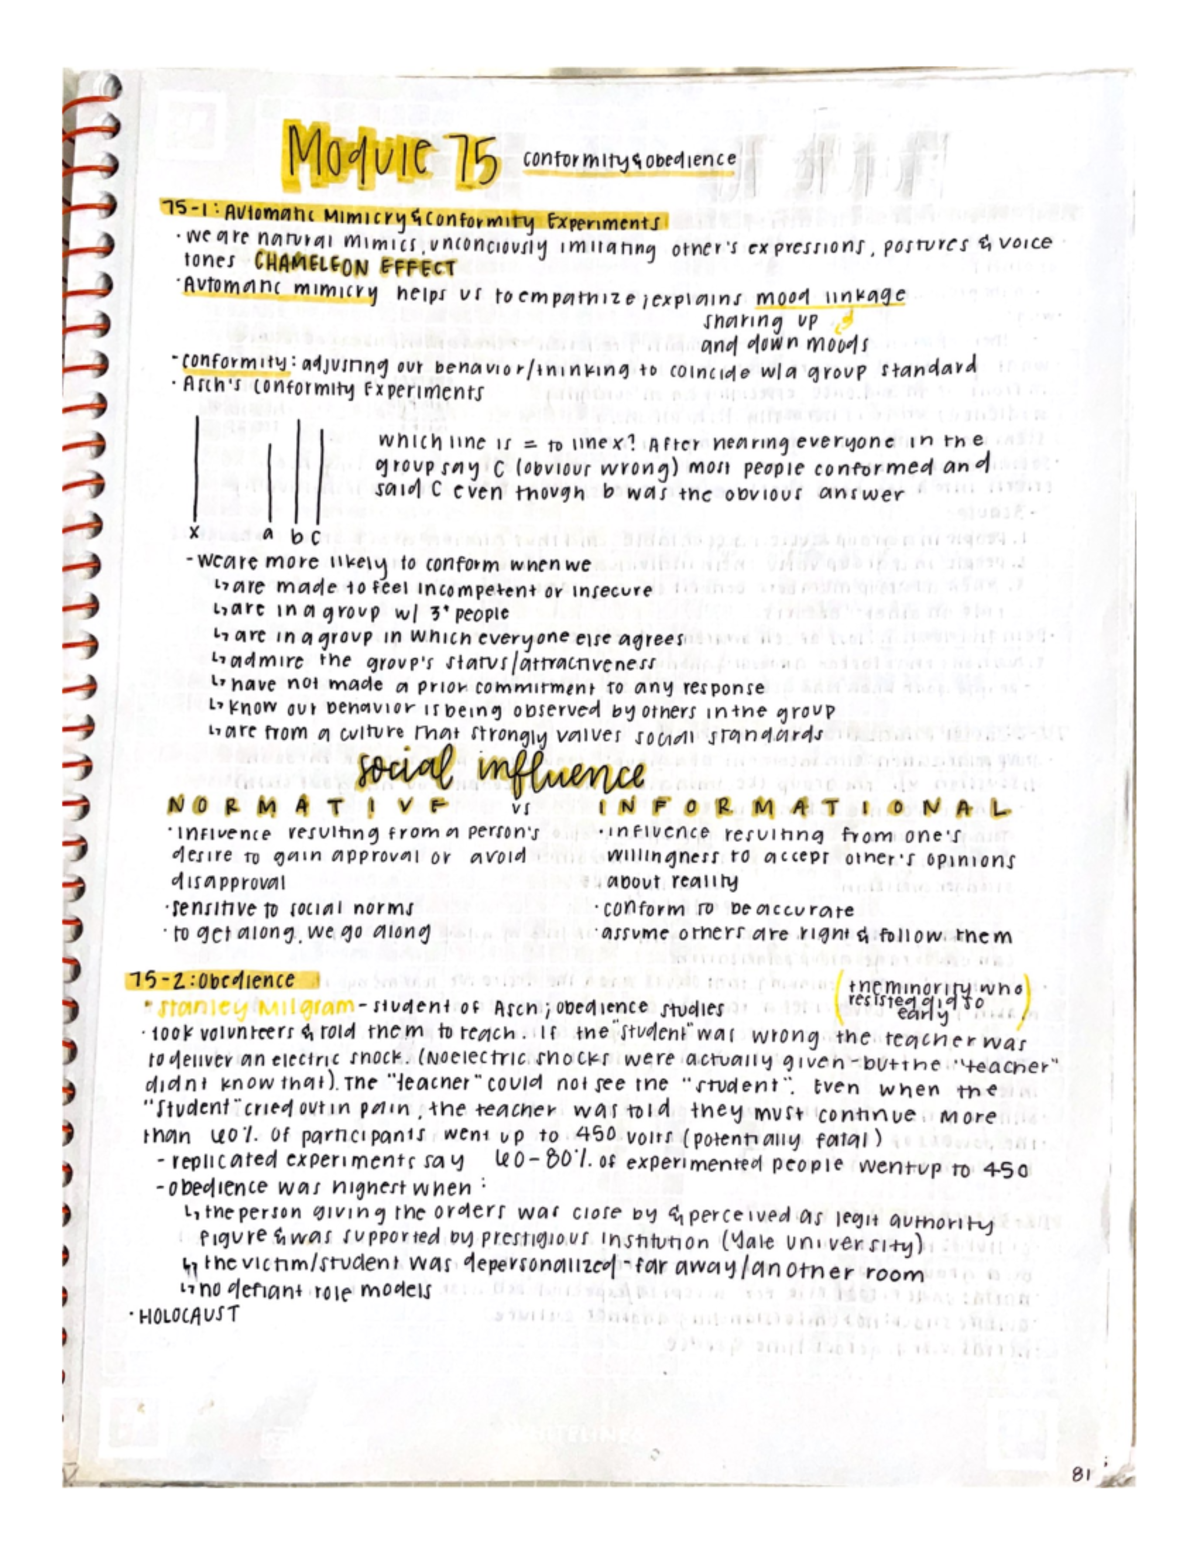 Module 75 conformity & obedience
75-1: Automatic Mimicry & Conformity Experiments
· we are natural mimics, unconciously imitating other's expressions, postures & voice
tones CHAMELEON EFFECT
· Automatic mimicry helps us to empathize; explains mood linkage
sharing up
and down moods
- conformity: adjusting our behavior/thinking to coincide w/a group standard
· Asch's Conformity Experiments
which line is = to line x? After hearing everyone in the
group say C (obvious wrong) most people conformed and
said C even though b was the obvious answer
x a b c
- we are more likely to conform when we
↳ are made to feel incompetent or insecure
↳ are in a group w/ 3+ people
↳ are in a group in which everyone else agrees
↳ admire the group's status/attractiveness
↳ have not made a prior commitment to any response
↳ know our behavior is being observed by others in the group
↳ are from a culture that strongly values social standards
social influence
NORMATIVE vs INFORMATIONAL
· influence resulting from a person's
desire to gain approval or avoid
disapproval
· sensitive to social norms
· to get along, we go along
· influence resulting from one's
willingness to accept other's opinions
about reality
· conform to be accurate
· assume others are right & follow them
75-2: Obedience
(the minority who
resisted did so
early)
· Stanley Milgram - student of Asch; obedience studies
· took volunteers & told them to teach. If the "student" was wrong the teacher was
to deliver an electric shock. (No electric shocks were actually given - but the "teacher"
didnt know that). The "teacher" could not see the "student". Even when the
"student" cried out in pain, the teacher was told they must continue more
than 60%. of participants went up to 450 volts (potentially fatal)
- replicated experiments say 60-80%. of experimented people went up to 450
- obedience was highest when:
↳ the person giving the orders was close by & perceived as legit authority
figure & was supported by prestigious institution (Yale university)
↳ the victim/student was depersonalized - far away/another room
↳ no defiant role models
· HOLOCAUST
81